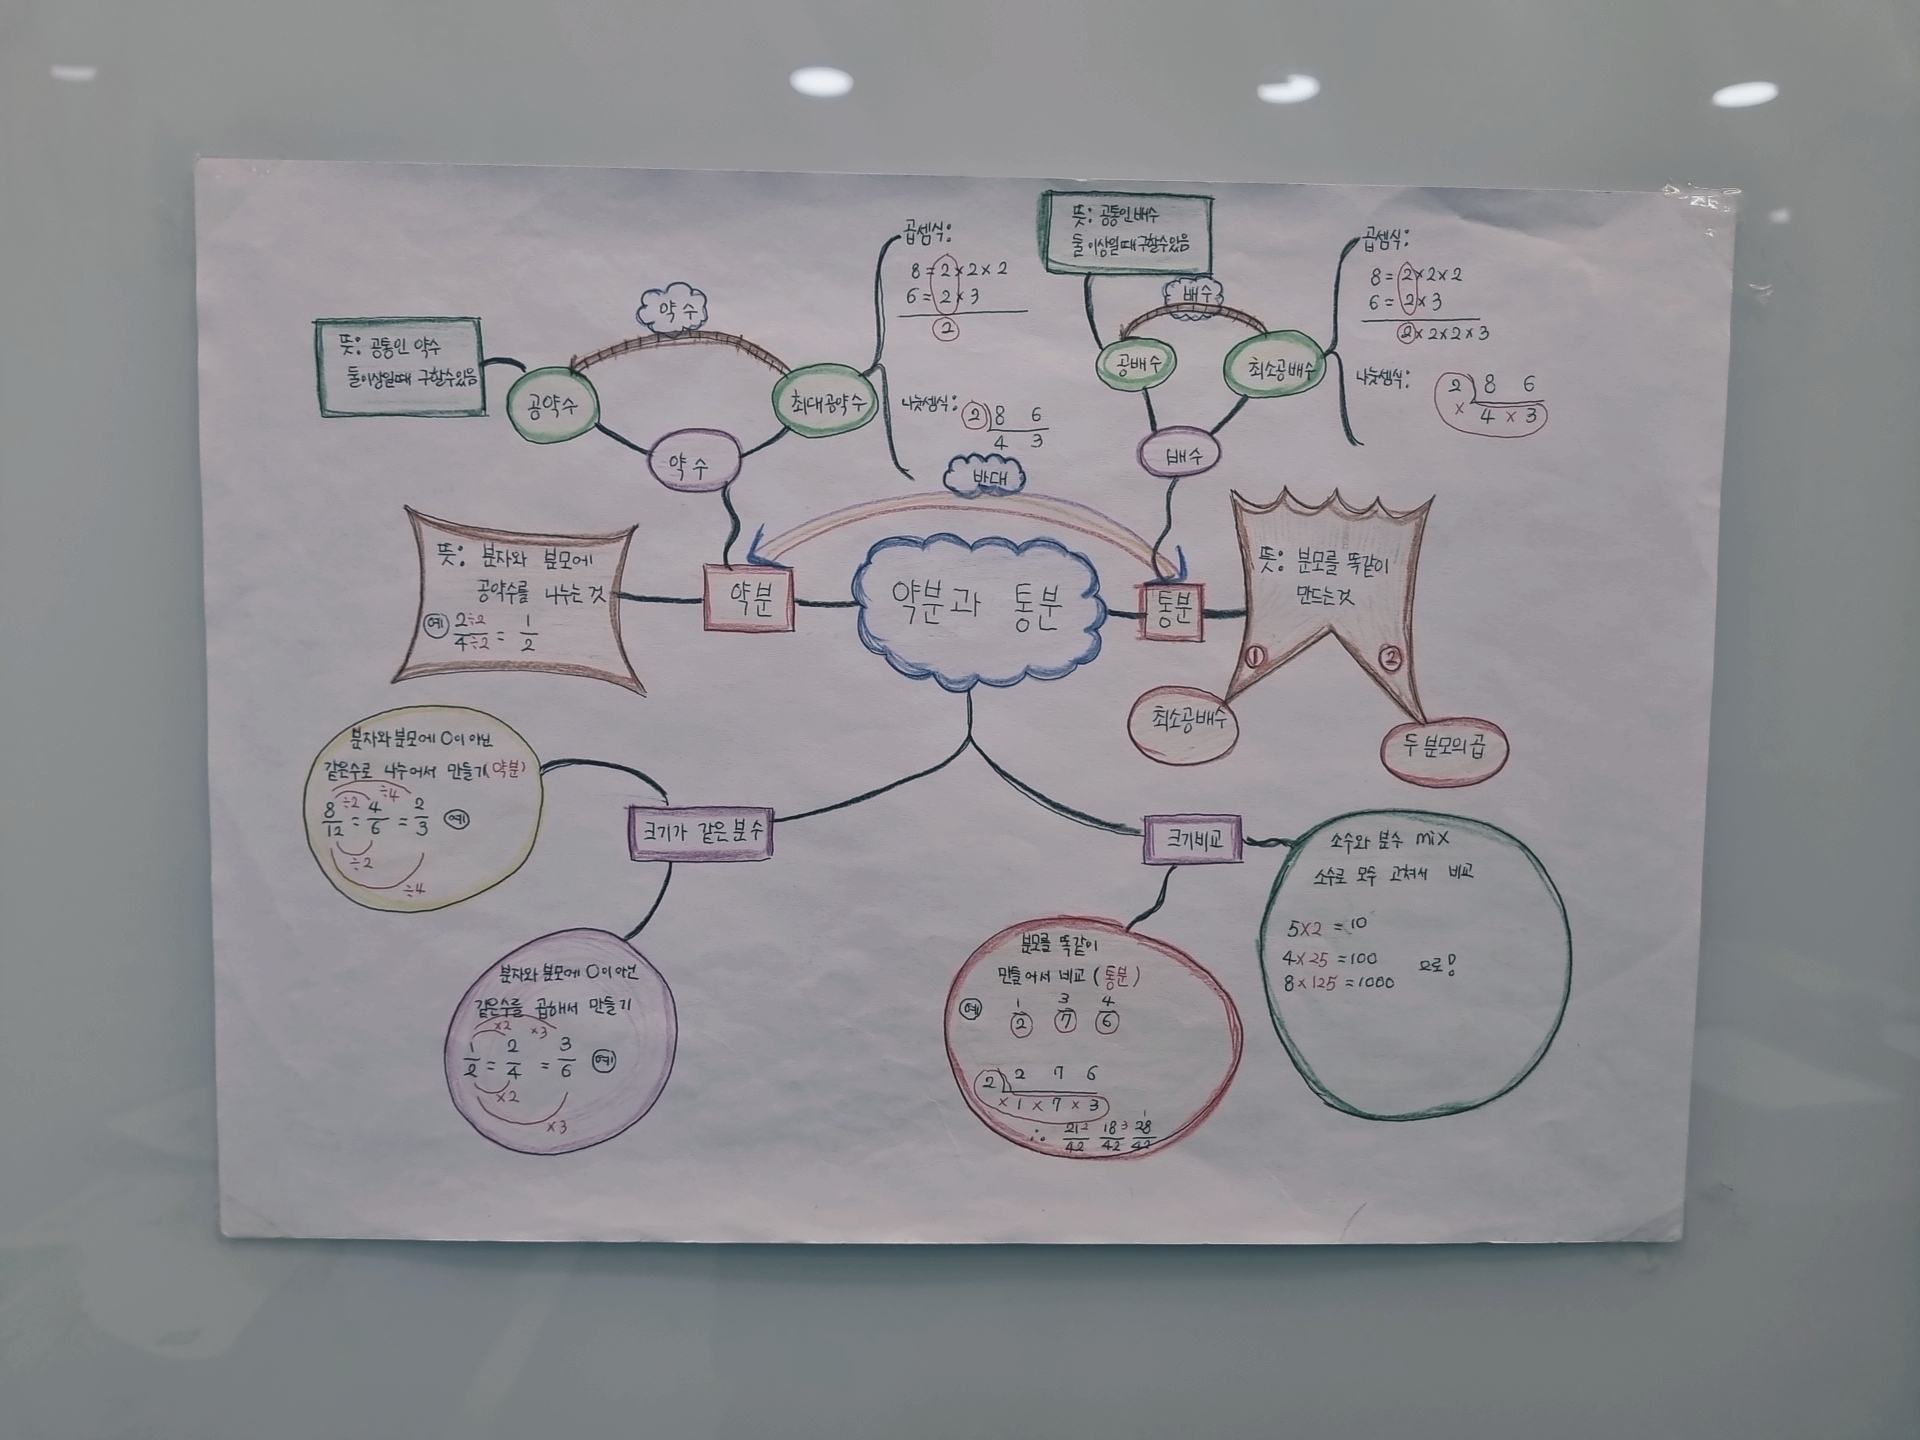 약분과 통분
반대
약분
뜻: 분자와 분모에
공약수를 나누는 것
예 2÷2/4÷2 = 1/2
약수
공약수
뜻: 공통인 약수
둘이상일때 구할수있음
약수
최대공약수
곱셈식:
8=2×2×2
6=2×3
2
나눗셈식:
2) 8 6
4 3
통분
뜻: 분모를 똑같이
만드는것
①
②
최소공배수
두 분모의 곱
배수
공배수
뜻: 공통인 배수
둘 이상일때 구할수있음
배수
최소공배수
곱셈식:
8=2×2×2
6=2×3
2×2×2×3
나눗셈식:
2) 8 6
× 4 × 3
크기가 같은 분수
분자와 분모에 0이 아닌
같은수로 나누어서 만들기(약분)
÷2 ÷4
8/12 = 4/6 = 2/3 예
÷2
÷4
분자와 분모에 0이 아닌
같은수를 곱해서 만들기
×2 ×3
1/2 = 2/4 = 3/6 예
×2
×3
크기비교
분모를 똑같이
만들어서 비교 (통분)
예 1/2 3/7 4/6
2) 2 7 6
× 1 × 7 × 3
∴ 21/42 2 18/42 3 28/42 1
소수와 분수 mix
소수로 모두 고쳐서 비교
5×2 =10
4×25 =100
8×125 =1000
요로!